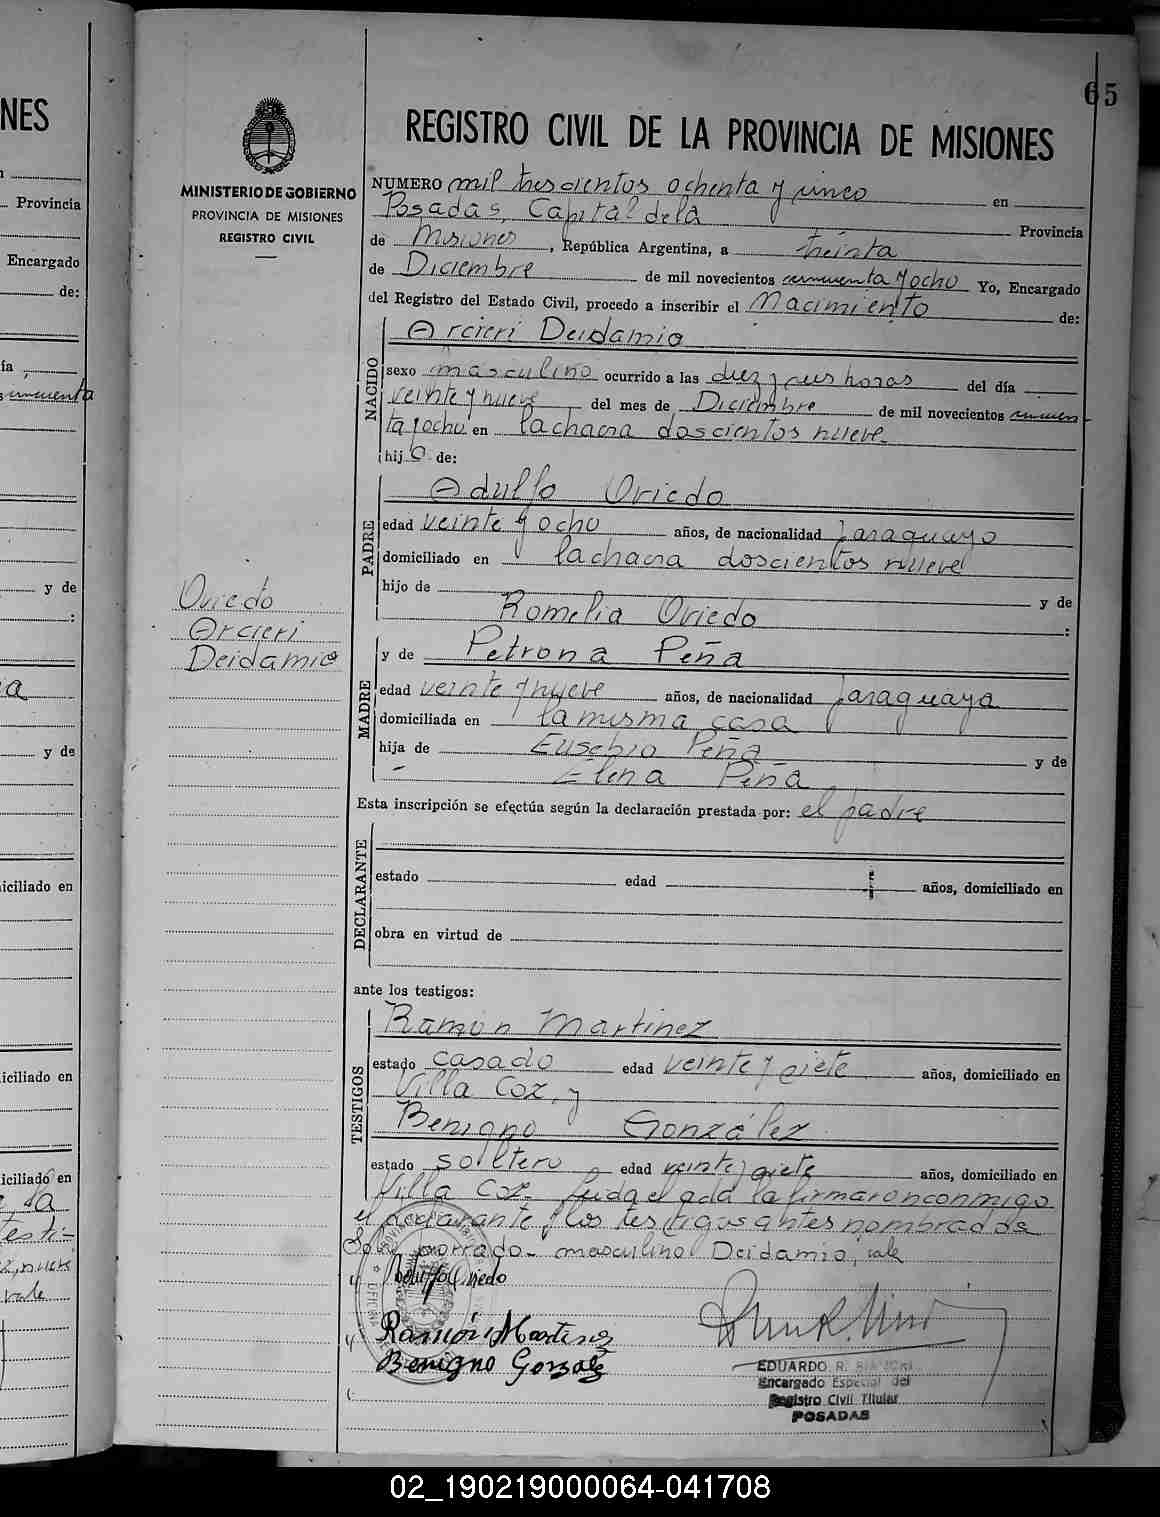 65
REGISTRO CIVIL DE LA PROVINCIA DE MISIONES
MINISTERIO DE GOBIERNO
PROVINCIA DE MISIONES
REGISTRO CIVIL
NUMERO mil trescientos ochenta y cinco en
Posadas, Capital de la Provincia
de Misiones, República Argentina, a treinta
de Diciembre de mil novecientos cincuenta y ocho Yo, Encargado
del Registro del Estado Civil, procedo a inscribir el Nacimiento de:
NACIDO
Arcieri Deidamio
sexo masculino ocurrido a las diez y seis horas del día
veinte y nueve del mes de Diciembre de mil novecientos cincuen-
ta y ocho en la chacra doscientos nueve.
hijo de:
PADRE
Adulfo Oviedo
edad veinte y ocho años, de nacionalidad paraguayo
domiciliado en la chacra doscientos nueve
hijo de y de
Romelia Oviedo :
Oviedo
Arcieri
Deidamio
MADRE
y de Petrona Peña
edad veinte y nueve años, de nacionalidad paraguaya
domiciliada en la misma casa
hija de Eusebio Peña y de
Elena Peña
Esta inscripción se efectúa según la declaración prestada por: el padre
DECLARANTE
estado edad años, domiciliado en
obra en virtud de
ante los testigos:
TESTIGOS
Ramón Martinez
estado casado edad veinte y siete años, domiciliado en
Villa Coz, y
Benigno González
estado soltero edad veinte y siete años, domiciliado en
Villa Coz. Leida el acta la firmaron conmigo
el declarante y los testigos antes nombrados
Sobre borrado - masculino Deidamio, vale
Adulfo Oviedo
Ramón Martinez
Benigno Gonzalez
EDUARDO R.
Encargado Especial del
Registro Civil Titular
POSADAS
NES
Provincia
Encargado
de:
ía
cincuenta
y de
:
a
y de
iciliado en
iciliado en
iciliado en
testi-
vale
02_190219000064-041708